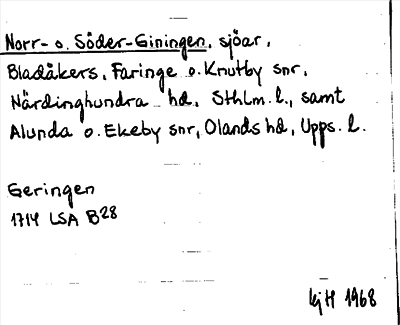 Norr- o. Söder-Giningen, sjöar,
Bladåkers, Faringe o. Knutby snr,
Närdinghundra hd, Sthlm. l., samt
Alunda o. Ekeby snr, Olands hd, Upps. l.
Geringen
1714 LSA B28
kjH 1968